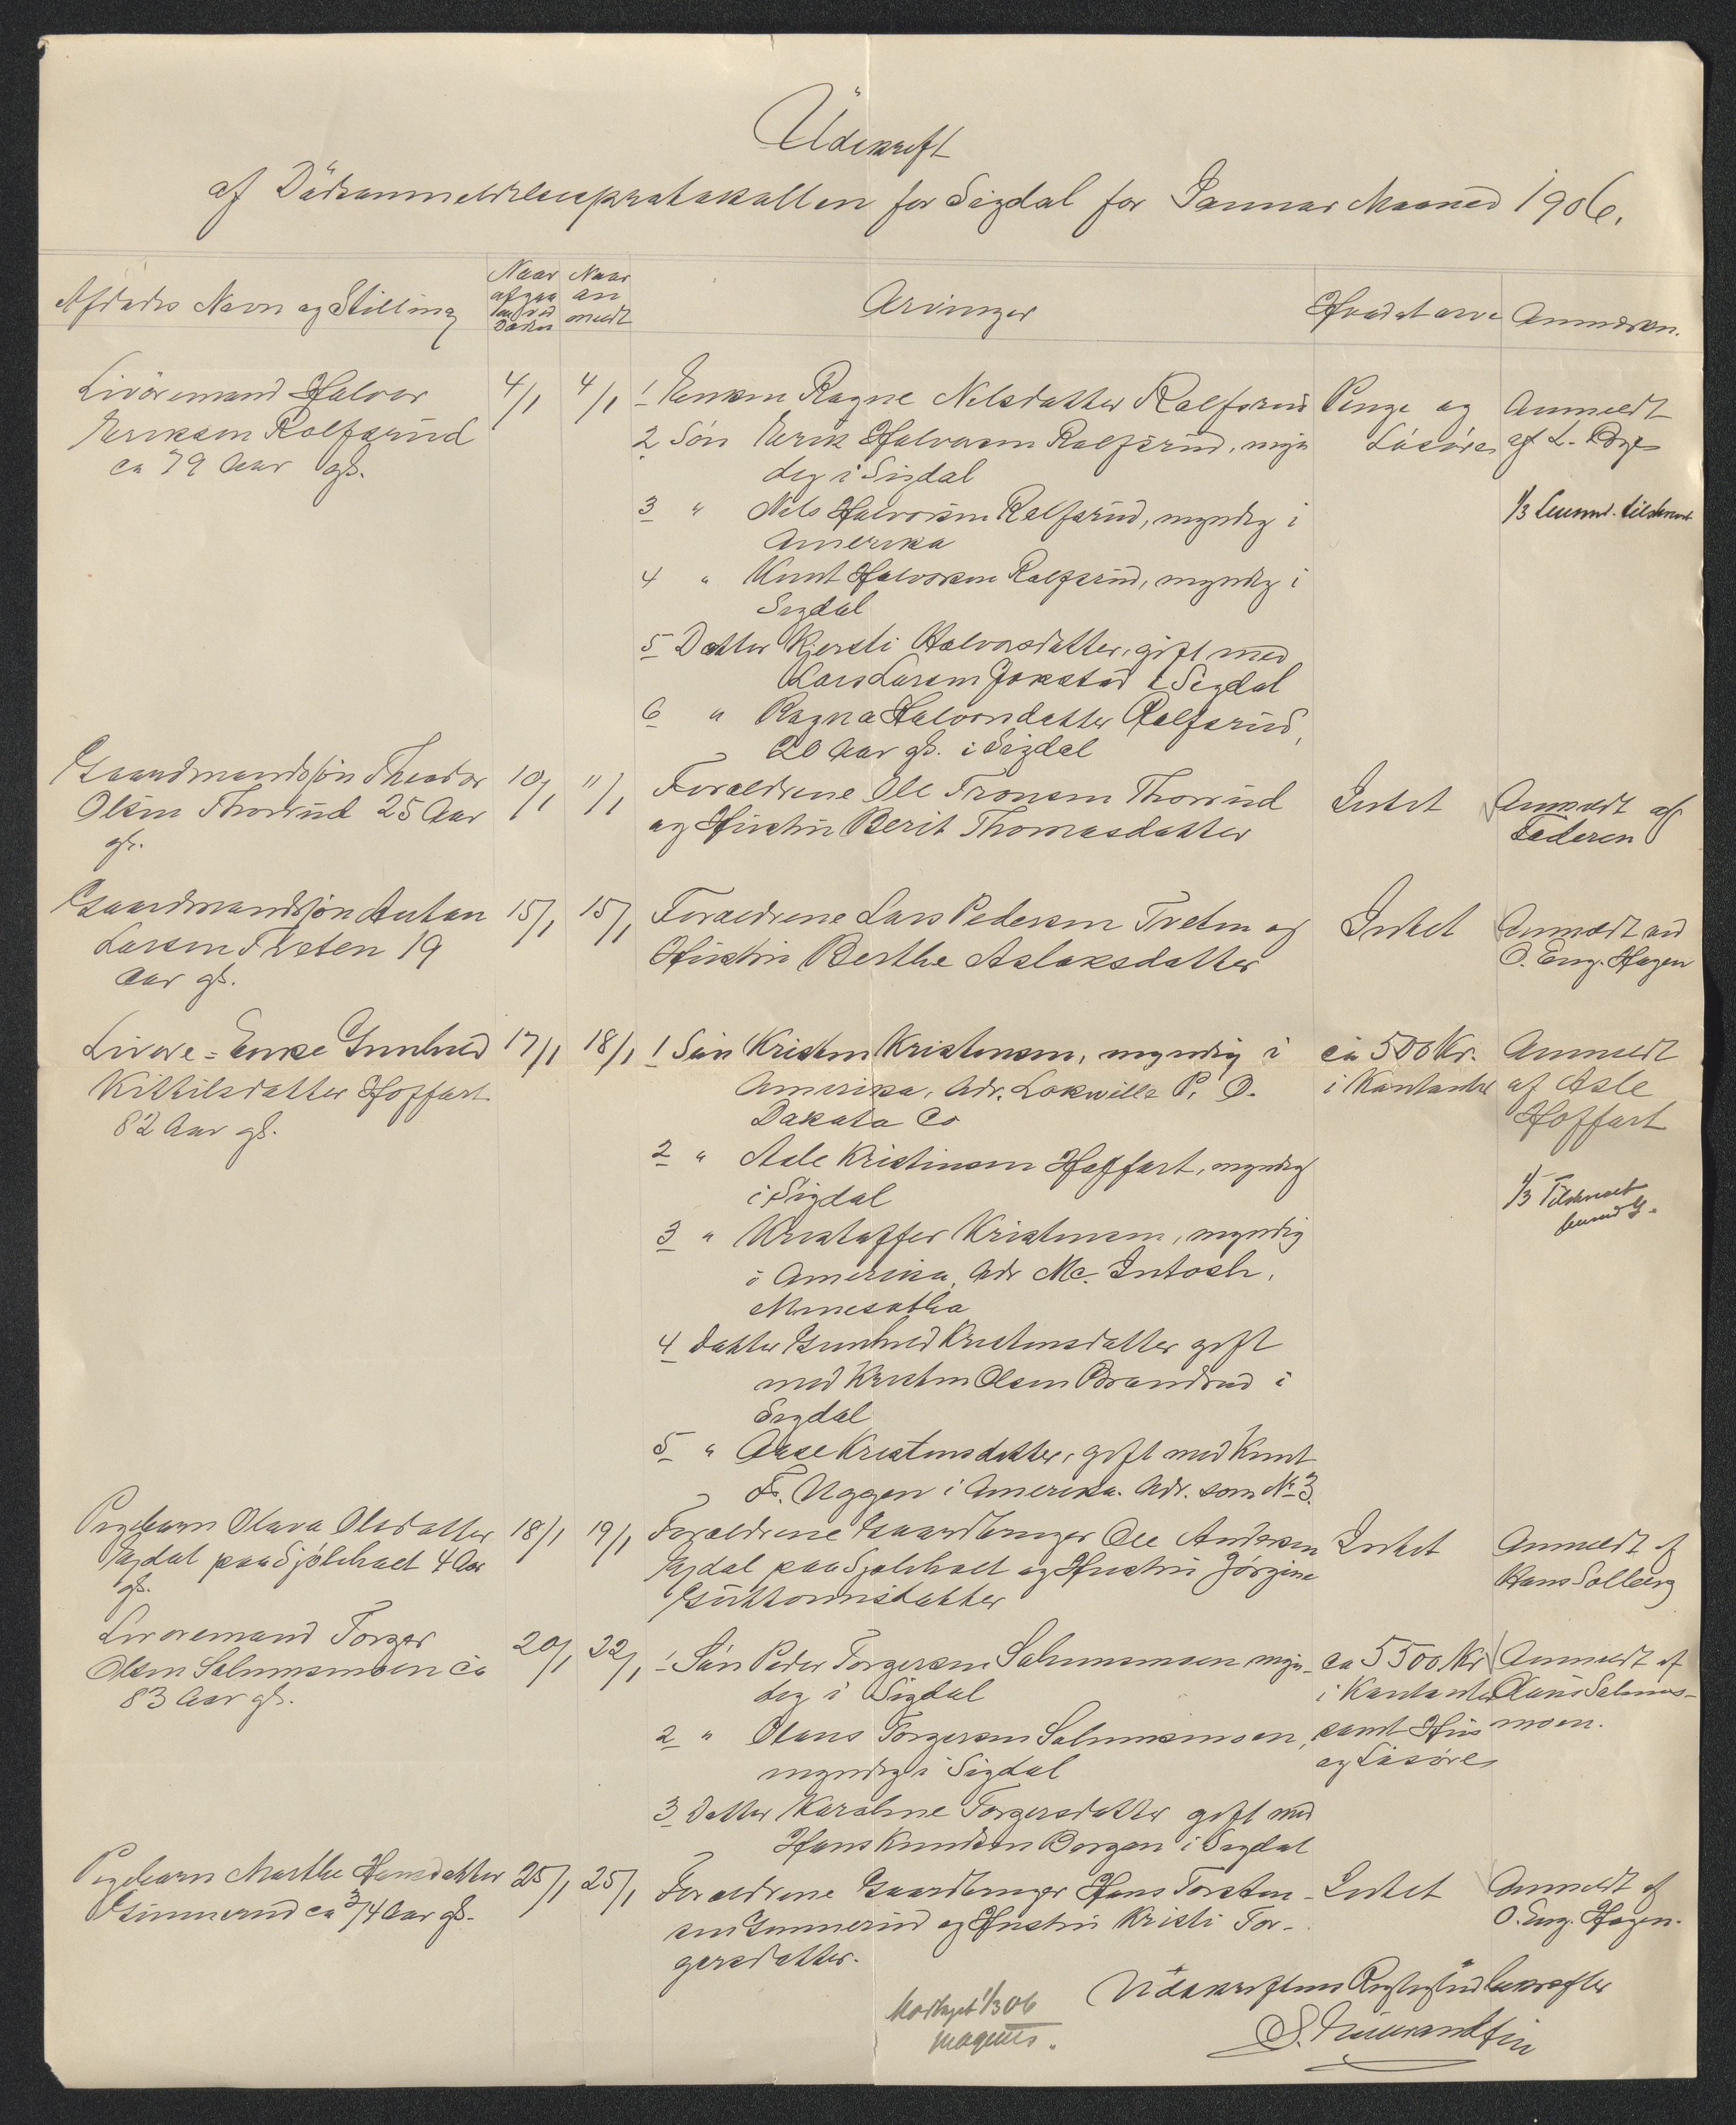 Udskrift
af Dödsanmeldelsesprotokollen for Sigdal for Januar Maaned 1906.
Afdødes Navn og Stilling
Naar afgaaen ved Døden
Naar anmeldt
Arvinger
Hvad at arve
Anmærkn.
Livöremand Halvor
Eriksen Rolfsrud
ca 79 Aar gl.
4/1
4/1
1 Enken Ragne Nilsdatter Rolfsrud
2 Sön Erik Halvorsen Rolfsrud, myn
dig i Sigdal
3 " Nils Halvorsen Rolfsrud, myndig i
Amerika
4 " Knut Halvorsen Rolfsrud, myndig i
Sigdal
5 Datter Kjersti Halvorsdatter, gift med
Lars Larsen Jokstad i Sigdal
6 " Ragna Halvorsdatter Rolfsrud,
20 Aar gl. i Sigdal
Penge og
Lösöre
Anmeldt
af L.
1/3 Lensm. tilskrevet
Gaardmandssön Theodor
Olsen Thorrud 25 Aar
gl.
10/1
11/1
Forældrene Ole Tronsen Thorrud
og Hustru Berit Thomasdatter
Intet
Anmeldt af
Faderen
Gaardmandssön Anton
Larsen Tveten 19
Aar gl.
15/1
15/1
Forældrene Lars Pedersen Tveten og
Hustru Berthe Aslaksdatter
Intet
Anmeldt ved
O. Eng. Hagen
Livøre=Enke Gunhild
Kittilsdatter Hoffart
82 Aar gl.
17/1
18/1
1 Sön Kristen Kristensen, myndig i
Amerika, Adr. Lokwille P. O.
Dakota Co
2 " Asle Kristensen Hoffart, myndig
i Sigdal
3 " Kristoffer Kristensen, myndig
i Amerika, Adr Mc. Intosh,
Minesotha
4 Datter Gunhild Kristensdatter gift
med Kristen Olsen Brandrud i
Sigdal
5 " Aase Kristensdatter, gift med Knut
F. Uggen i Amerika. Adr. som No 3.
ca 500 Kr.
i Kontanter
Anmeldt
af Asle
Hoffart
1/3 Tilskrevet
Lensm.
Pigebarn Olava Olsdatter
paa Sjölihaet 4 Aar
gl.
18/1
19/1
Forældrene Gaardbruger Ole Andersen
paa Sjölihaet og Hustru Jörgine
Guttormsdatter
Intet
Anmeldt af
Hans Solberg
Livøremand Torger
Olsen Salumsmoen ca
83 Aar gl.
20/1
22/1
1 Sön Peder Torgersen Salumsmoen myn-
dig i Sigdal
2 " Olaus Torgersen Salumsmoen,
myndig i Sigdal
3 Datter Karoline Torgersdatter gift med
Hans Knudsen Borgen i Sigdal
ca 5500 Kr
i Kontanter
samt Hus
og Lösöre
Anmeldt af
Olaus Salums-
moen.
Pigebarn Marthe Hansdatter
Gunnerud ca 3/4 Aar gl.
25/1
25/1
Forældrene Gaardbruger Hans Torsten-
sen Gunnerud og Hustru Kristi Tor-
gersdatter.
Intet
Anmeldt af
O. Eng. Hagen.
Modtaget 1/3 06
Udskriftens Rigtighed bekræfter